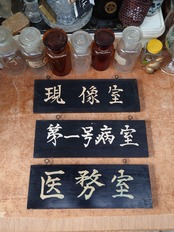 現像室
第一号病室
医務室